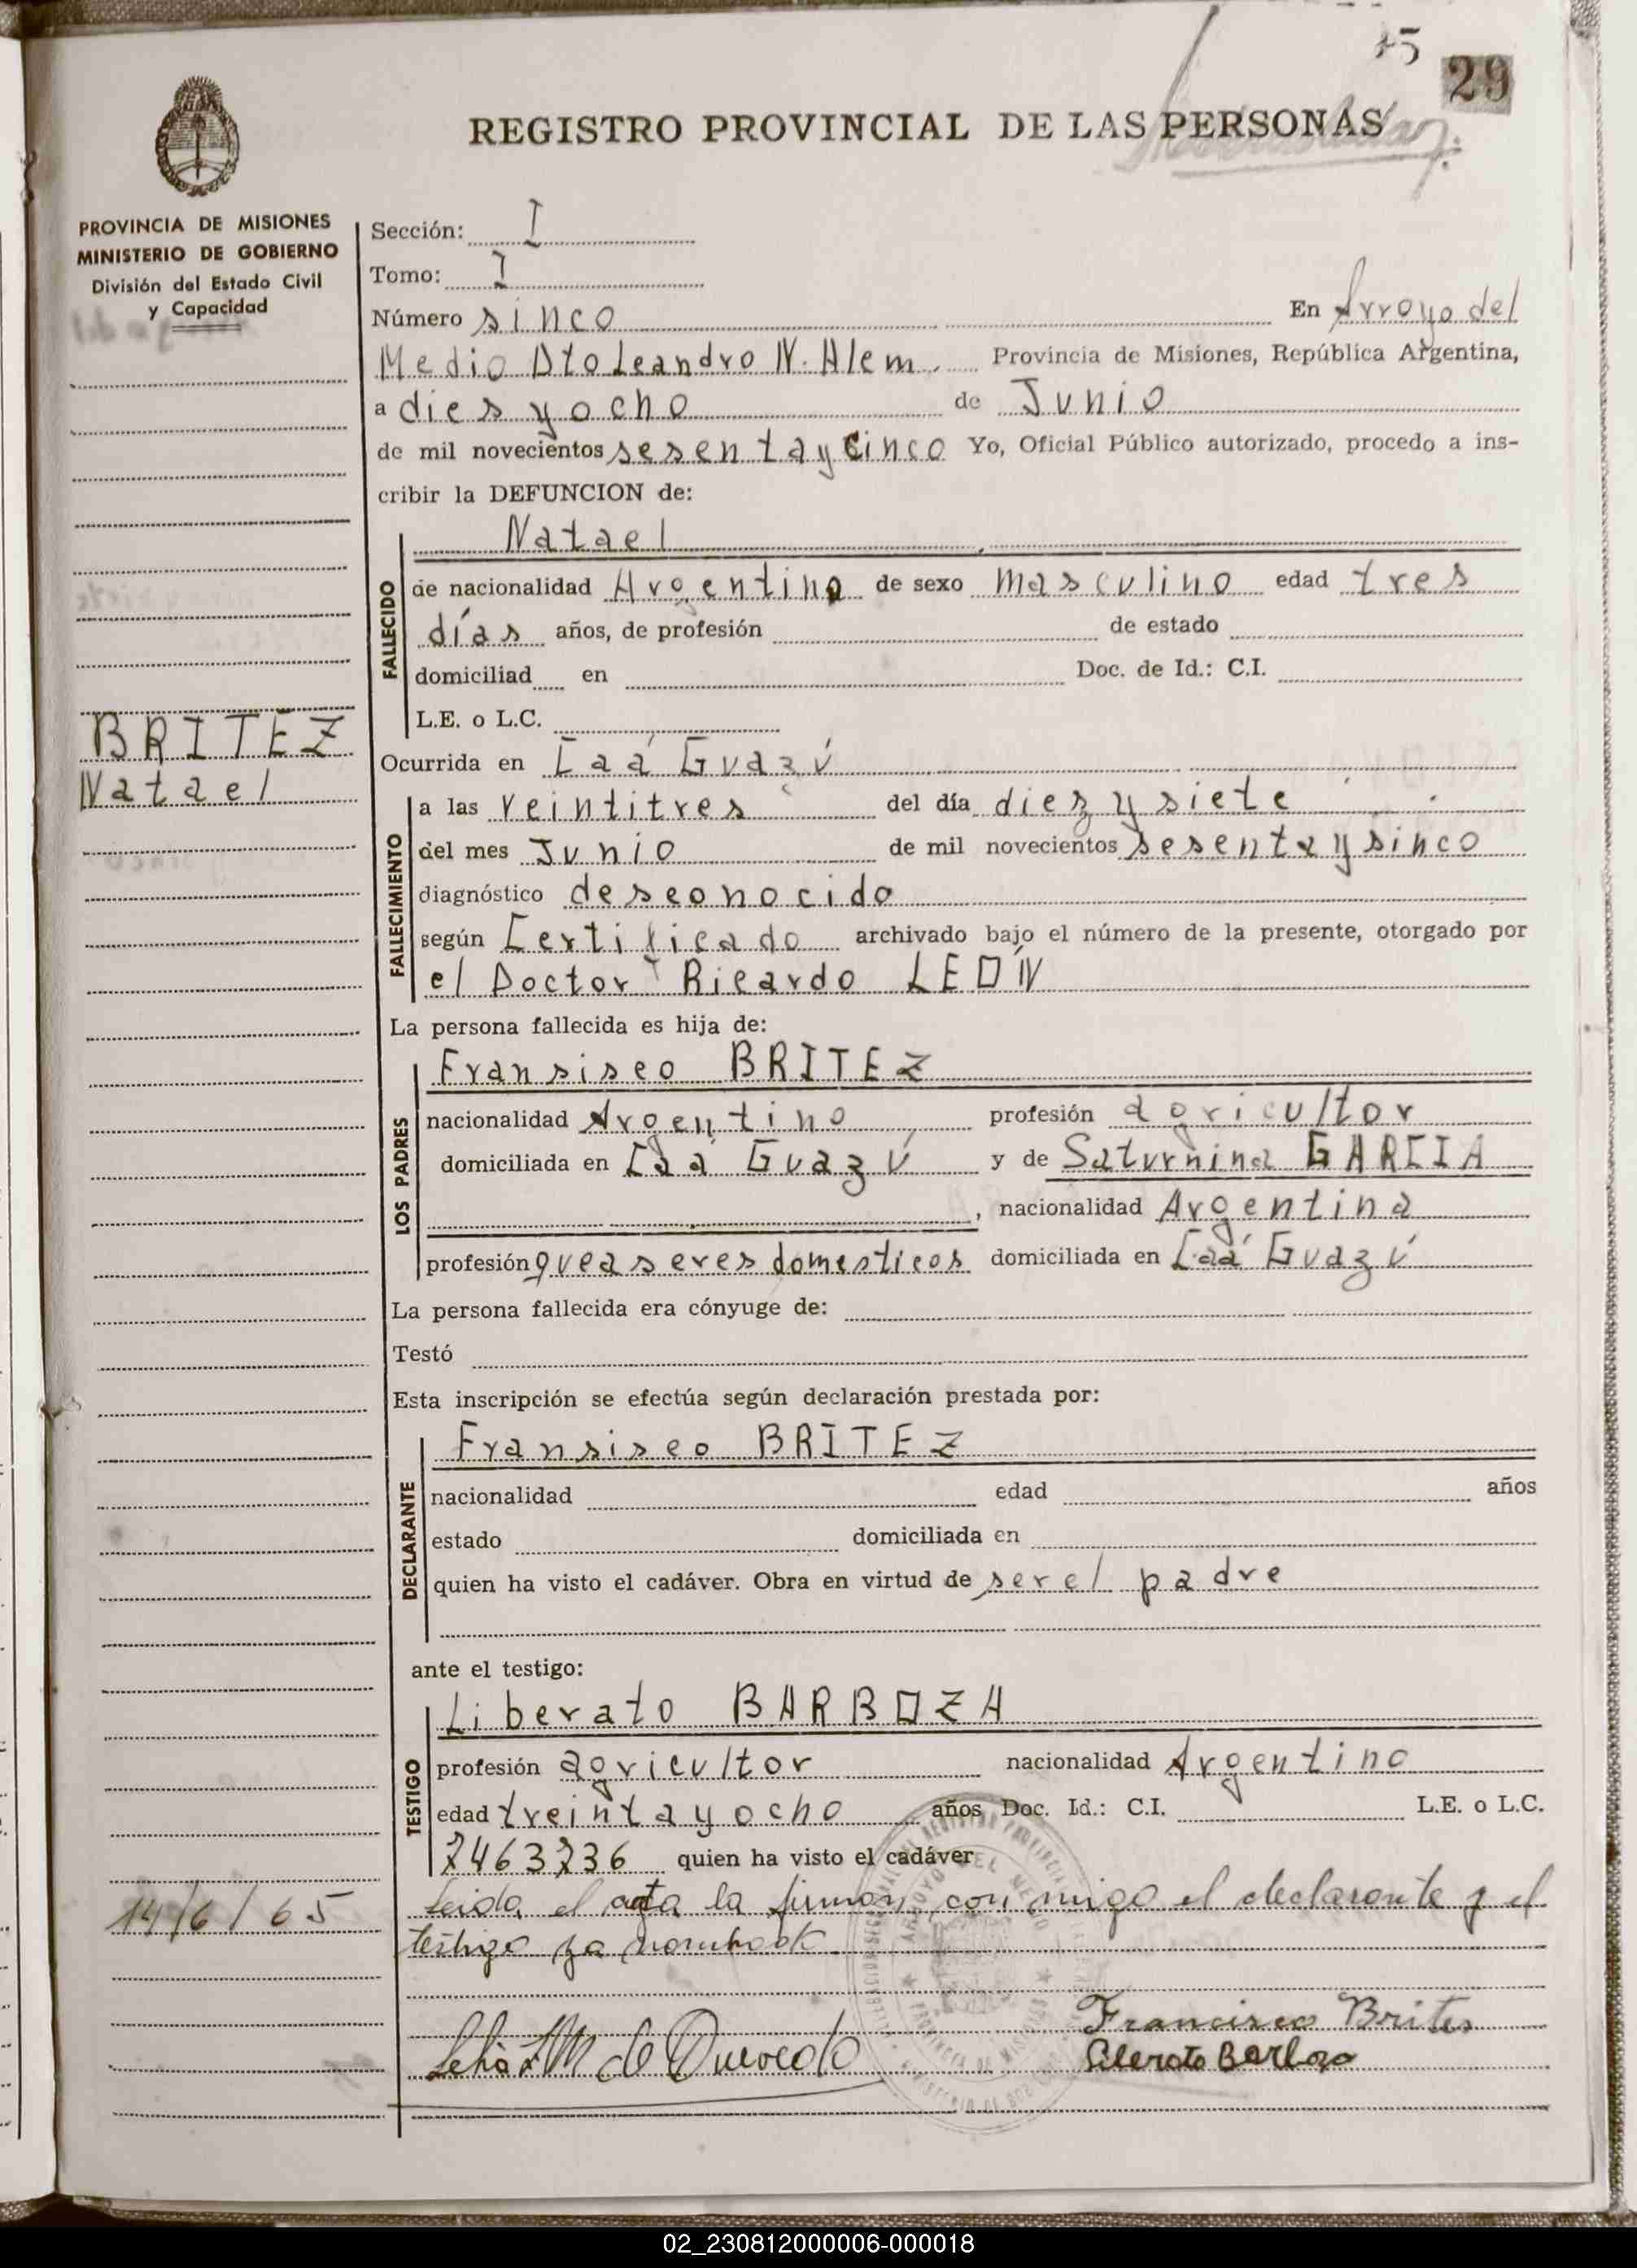 15
29
REGISTRO PROVINCIAL DE LAS PERSONAS
PROVINCIA DE MISIONES
MINISTERIO DE GOBIERNO
División del Estado Civil
y Capacidad
Sección: I
Tomo: I
Número sinco En Arroyo del
Medio Dto Leandro N. Alem, Provincia de Misiones, República Argentina,
a dies y ocho de Junio
de mil novecientos sesenta y cinco Yo, Oficial Público autorizado, procedo a ins-
cribir la DEFUNCION de:
FALLECIDO
Natael
de nacionalidad Argentino de sexo masculino edad tres
días años, de profesión de estado
domiciliad en Doc. de Id.: C.I.
L.E. o L.C.
BRITEZ
Natael
Ocurrida en Caá Guazú
FALLECIMIENTO
a las veintitres del día diez y siete
del mes Junio de mil novecientos sesenta y sinco
diagnóstico desconocido
según Certificado archivado bajo el número de la presente, otorgado por
el Doctor Ricardo LEÓN
La persona fallecida es hija de:
LOS PADRES
Fransisco BRITEZ
nacionalidad Argentino profesión agricultor
domiciliada en Caá Guazú y de Saturnina GARCIA
, nacionalidad Argentina
profesión queaseres domesticos domiciliada en Caá Guazú
La persona fallecida era cónyuge de:
Testó
Esta inscripción se efectúa según declaración prestada por:
DECLARANTE
Fransisco BRITEZ
nacionalidad edad años
estado domiciliada en
quien ha visto el cadáver. Obra en virtud de ser el padre
ante el testigo:
TESTIGO
Liberato BARBOZA
profesión agricultor nacionalidad Argentino
edad treinta y ocho años Doc. Id.: C.I. L.E. o L.C.
7463736 quien ha visto el cadáver
Leida el acta la firman con migo el declarante y el
testigo ya
14/6/65
de Quevedo
Francisco Brites
Liberato Barboza
02_230812000006-000018